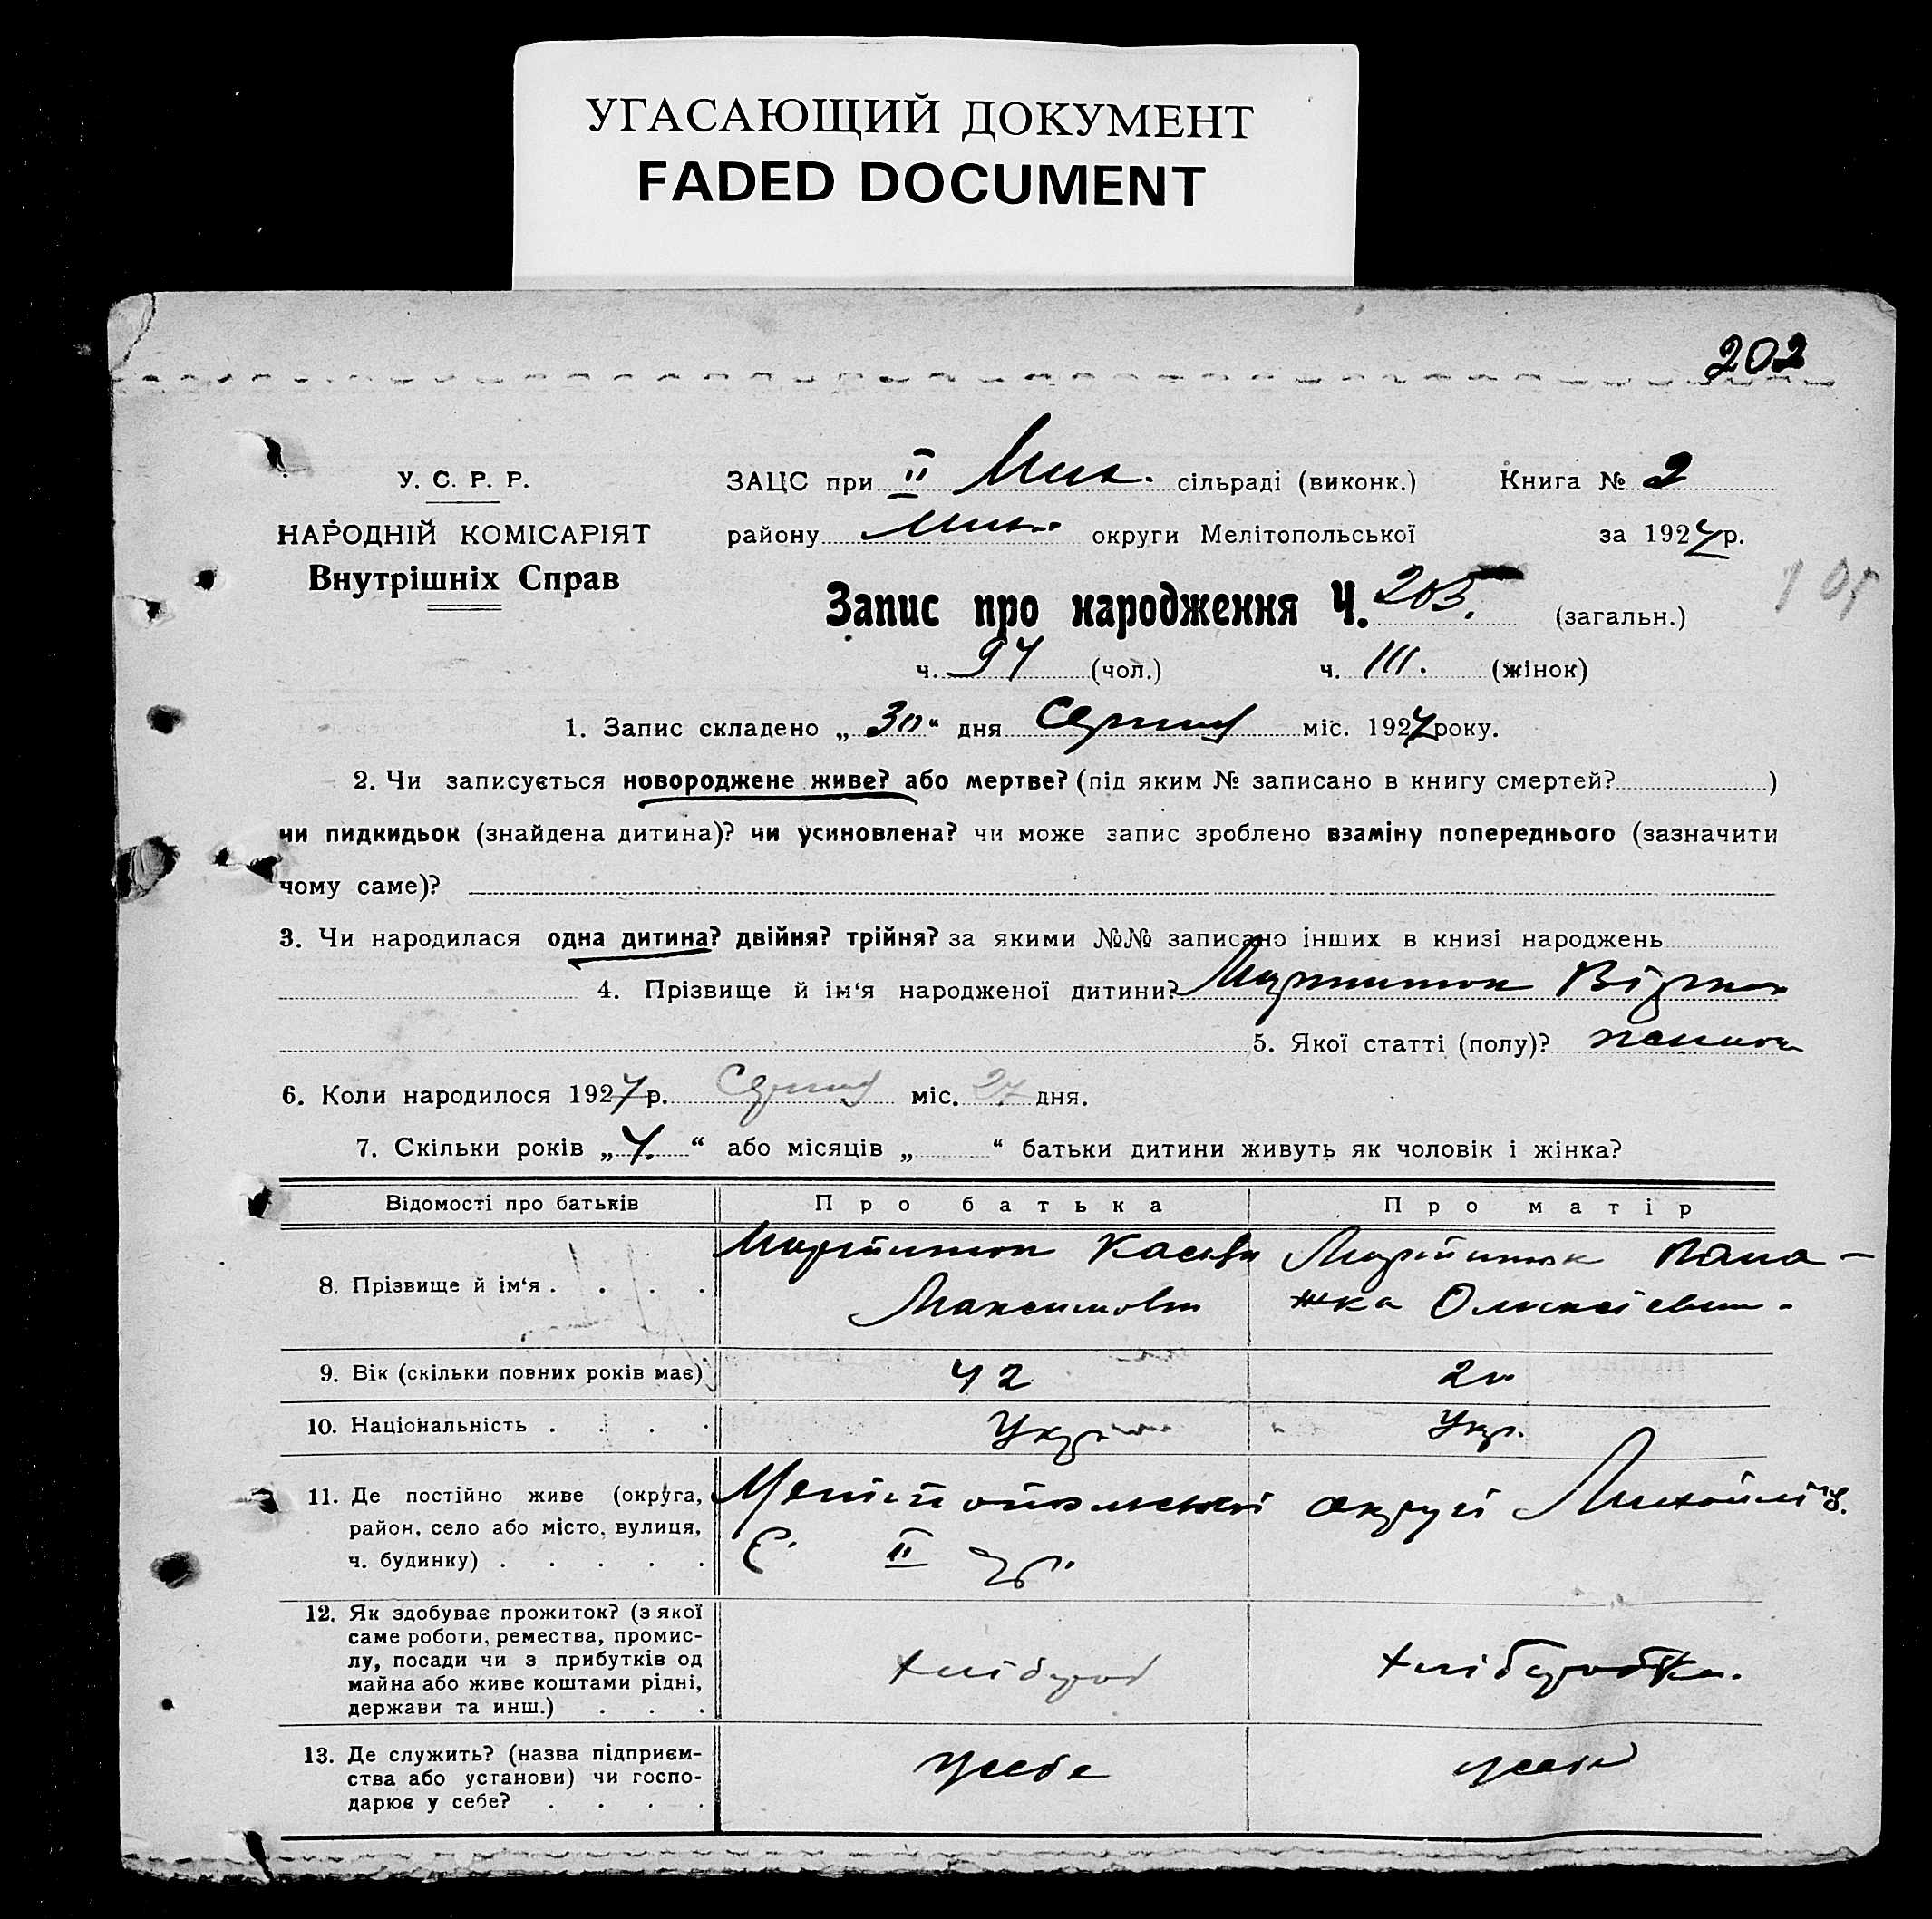 УГАСАЮЩИЙ ДОКУМЕНТ
FADED DOCUMENT
202
У. С. Р. Р.
НАРОДНІЙ КОМІСАРІЯТ
Внутрішніх Справ
ЗАЦС при II Мих. сільраді (виконк.)
Книга № 2
району Мих. округи Мелітопольської
за 1927 р.
Запис про народження Ч. 205. (загальн.)
ч. 94 (чол.) ч. 111. (жінок)
1. Запис складено „ 30 “ дня Серпня міс. 1927 року.
2. Чи записується новороджене живе? або мертве? (під яким № записано в книгу смертей? )
чи пидкидьок (знайдена дитина)? чи усиновлена? чи може запис зроблено взаміну попереднього (зазначити
чому саме)?
3. Чи народилася одна дитина? двійня? трійня? за якими №№ записано інших в книзі народжень
4. Прізвище й ім‘я народженої дитини?
5. Якої статті (полу)? жіночої
6. Коли народилося 1927 р. Серпня міс. 27 дня.
7. Скільки років „ “ або місяців „ “ батьки дитини живуть як чоловік і жінка?
Відомості про батьків
Про батька
Про матір
8. Прізвище й ім‘я . . . .
Касьян
Максимович
Пала-
жка Олексіевна
9. Вік (скільки повних років має)
42
10. Національність . . . .
Укр.
Укр.
11. Де постійно живе (округа,
район, село або місто, вулиця,
ч. будинку) . . . . .
Мелітопольскої округі Михайлів.
С. II
12. Як здобуває прожиток? (з якої
саме роботи, ремества, промис-
лу, посади чи з прибутків од
майна або живе коштами рідні,
держави та инш.) . . .
хлібороб
хліборобка.
13. Де служить? (назва підприєм-
ства або установи) чи госпо-
дарює у себе? . . . .
у себе
у себе